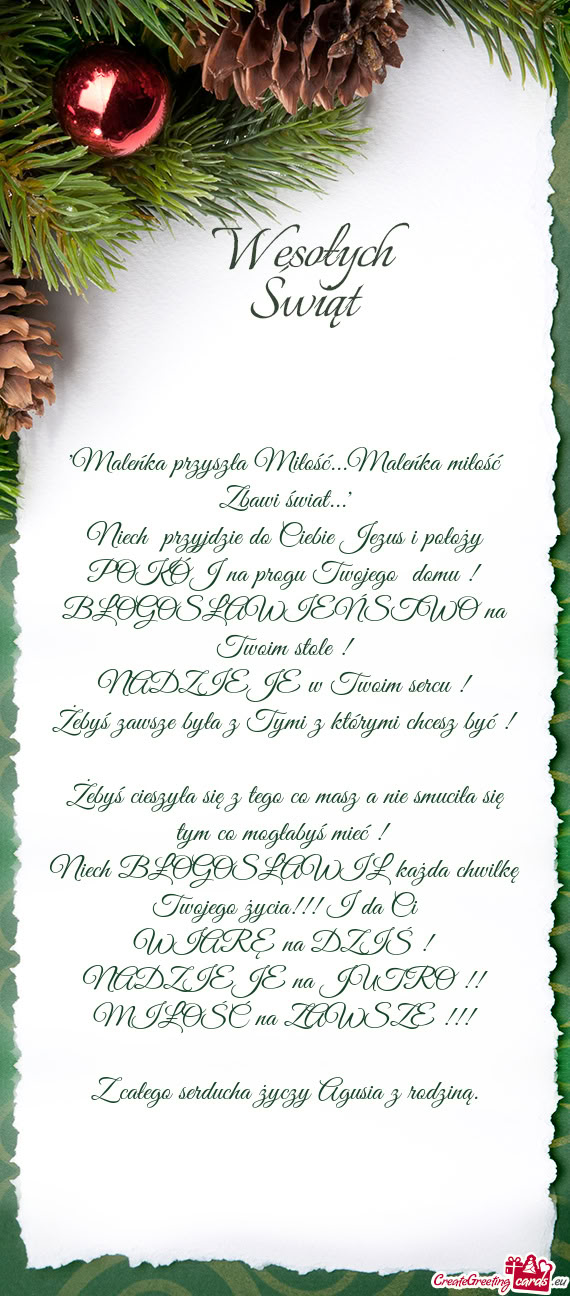 Wesołych
Święt
"Maleńka przyszła Miłość...Maleńka miłość
Zbawi świat..."
Niech przyjdzie do Ciebie Jezus i położy
POKÓJ na progu Twojego domu !
BŁOGOSŁAWIEŃSTWO na
Twoim stole !
NADZIEJE w Twoim sercu !
Żebyś zawsze była z Tymi z którymi chcesz być !
Żebyś cieszyła się z tego co masz a nie smuciła się
tym co mogłabyś mieć !
Niech BŁOGOSŁAWIŁ każda chwilkę
Twojego życia!!! I da Ci
WIARĘ na DZIŚ !
NADZIEJE na JUTRO !!
MIŁOŚĆ na ZAWSZE !!!
Z całego serducha życzy Agusia z rodziną.
CreateGreetingcards.eu